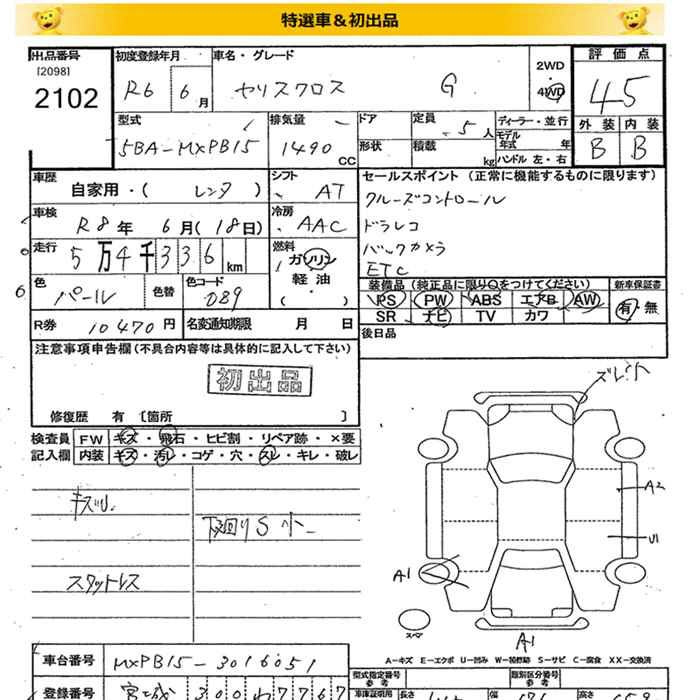 特選車&初出品
出品番号
[2098]
2102
初度登録年月
R6 6月
車名・グレード
ヤリスクロス G
2WD
4WD
評価点
4.5
外装 内装
B B
型式
5BA-MXPB15
排気量
1490 CC
ドア
形状
定員 5人
積載 kg
ディーラー・並行
モデル年式 年
ハンドル 左・右
車歴
自家用・( レンタ )
シフト
AT
車検
R8年 6月(18日)
冷房
AAC
走行
5万4千336km
燃料
ガソリン
軽油
色
パール
色替
色コード
089
R券 10470円
名変通知期限 月 日
セールスポイント(正常に機能するものに限ります)
クルーズコントロール
ドラレコ
バックカメラ
ETC
装備品(純正品に限り○をつけてください)
PS PW ABS エアB AW
SR ナビ TV カワ
新車保証書
有・無
後日品
注意事項申告欄(不具合内容等は具体的に記入して下さい)
初出品
修復歴 有 〔箇所 〕
検査員記入欄
FW キズ・飛石・ヒビ割・リペア跡・×要
内装 キズ・汚レ・コゲ・穴・スレ・キレ・破レ
下廻りS小
スタットレス
ズレ
A2
U1
A1
スペア
A1
A-キズ E-エクボ U-凹み W-補修跡 S-サビ C-腐食 XX-交換済
車台番号
MXPB15-3016051
登録番号
宮城 300 わ 7767
型式指定番号
参考
類別区分番号
参考
車庫証明用
長さ
幅
高さ